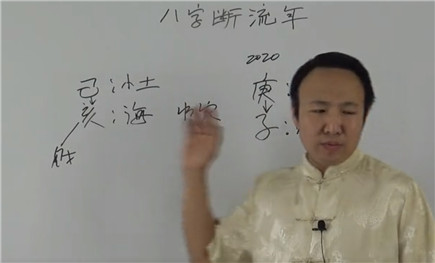 八字断流年
2020
己:小土 庚:
亥:海 子: